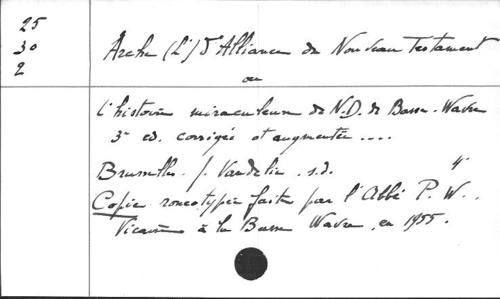 25
30
2
Arche (L') d'Alliance du Nouveau Testament
ou
l'histoire miraculeuse de N.D. de Basse-Wavre
3e ed. corrigée et augmentée ....
Bruxelles. J. Vandelin . s.d. 4°
Copie roneotypée faite par l'Abbé P. W..
Vicaire à la Basse Wavre, en 1955.